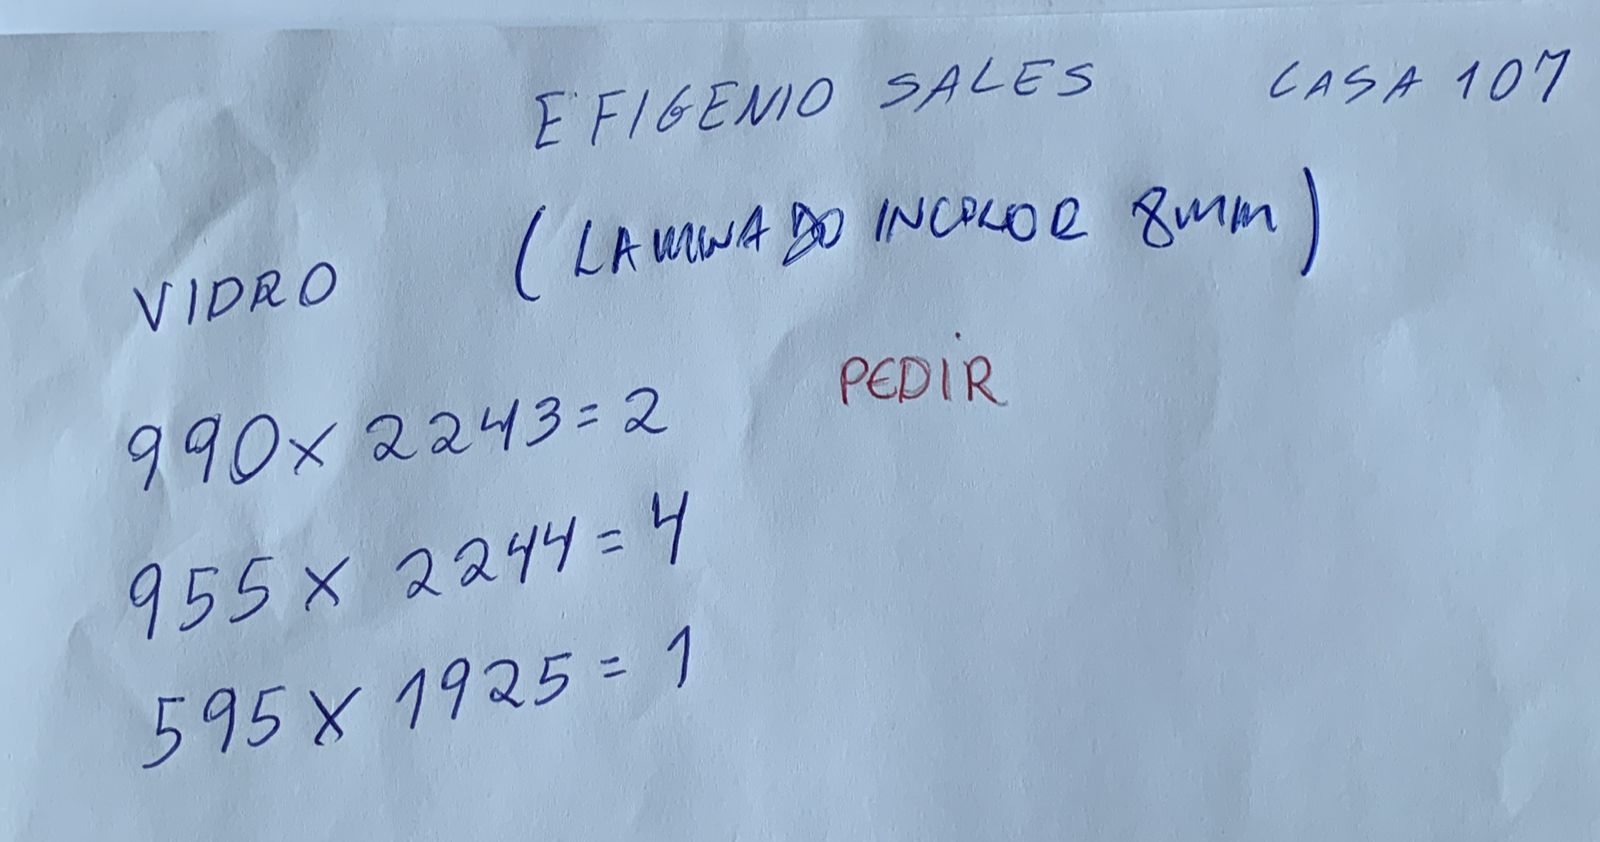 EFIGENIO SALES CASA 107
(LAMINADO INCOLOR 8mm)
VIDRO
PEDIR
990 x 2243 = 2
955 x 2244 = 4
595 x 1925 = 1